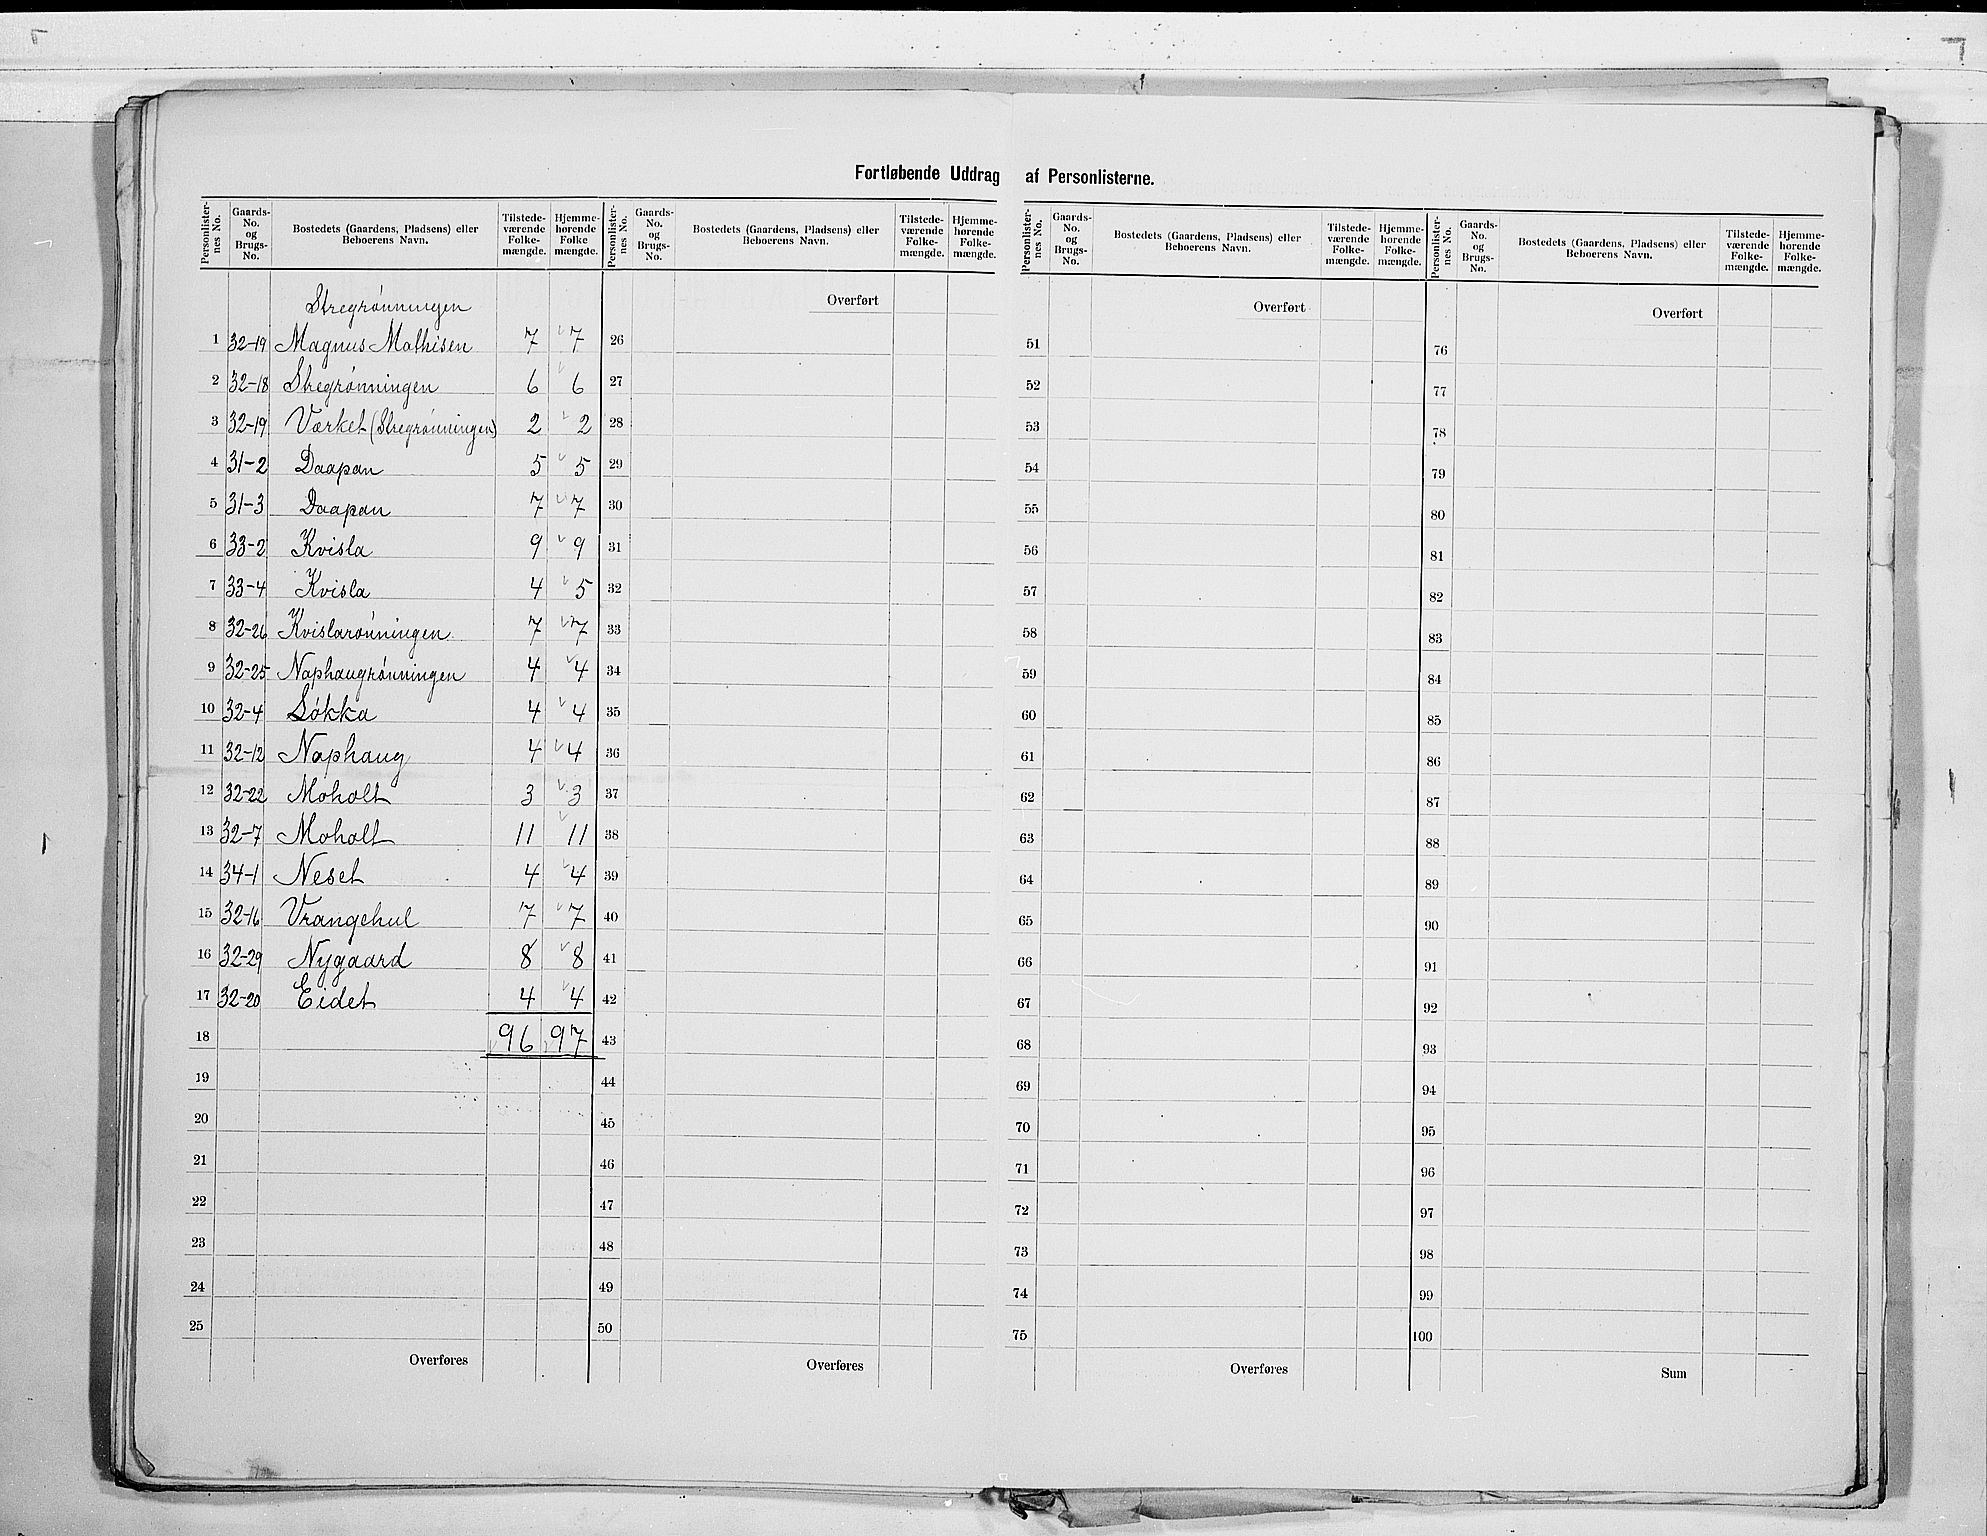 Fortløbende Uddrag af Personlisterne.
Personlister-nes No. Gaards-No. og Brugs-No. Bostedets (Gaardens, Pladsens) eller Beboerens Navn. Tilstede-værende Folke-mængde. Hjemme-hørende Folke mængde.
Stregrönningen
1 32-19 Magnus Mathisen 7 7
2 32-18 Stregrönningen 6 6
3 32-19 Værket (Stregrönningen) 2 2
4 31-2 Daapan 5 5
5 31-3 Daapan 7 7
6 33-2 Kvisla 9 9
7 33-4 Kvisla 4 5
8 32-26 Kvislarönningen 7 7
9 32-25 Naphaugrönningen 4 4
10 32-4 Løkka 4 4
11 32-12 Naphaug 4 4
12 32-22 Moholt 3 3
13 32-7 Moholt 11 11
14 34-1 Neset 4 4
15 32-16 Vrangehul 7 7
16 32-29 Nygaard 8 8
17 32-20 Eidet 4 4
18 96 97
19
20
21
22
23
24
25
Overføres
Personlister-nes No. Gaards-No. og Brugs-No. Bostedets (Gaardens, Pladsens) eller Beboerens Navn. Tilstede-værende Folke-mængde. Hjemme-hørende Folke-mængde.
Overført
26
27
28
29
30
31
32
33
34
35
36
37
38
39
40
41
42
43
44
45
46
47
48
49
50
Overføres
Personlister-nes No. Gaards-No. og Brugs-No. Bostedets (Gaardens, Pladsens) eller Beboerens Navn. Tilstede-værende Folke-mængde. Hjemme-hørende Folke-mængde.
Overført
51
52
53
54
55
56
57
58
59
60
61
62
63
64
65
66
67
68
69
70
71
72
73
74
75
Overføres
Personlister-nes No. Gaards-No. og Brugs-No. Bostedets (Gaardens, Pladsens) eller Beboerens Navn. Tilstede-værende Folke-mængde. Hjemme-hørende Folke-mængde.
Overført
76
77
78
79
80
81
82
83
84
85
86
87
88
89
90
91
92
93
94
95
96
97
98
99
100
Sum